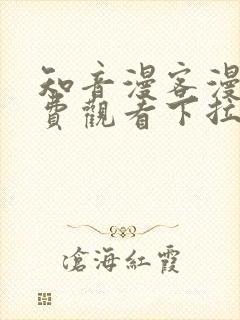 知音漫客漫
費觀看下拉
滄海紅霞